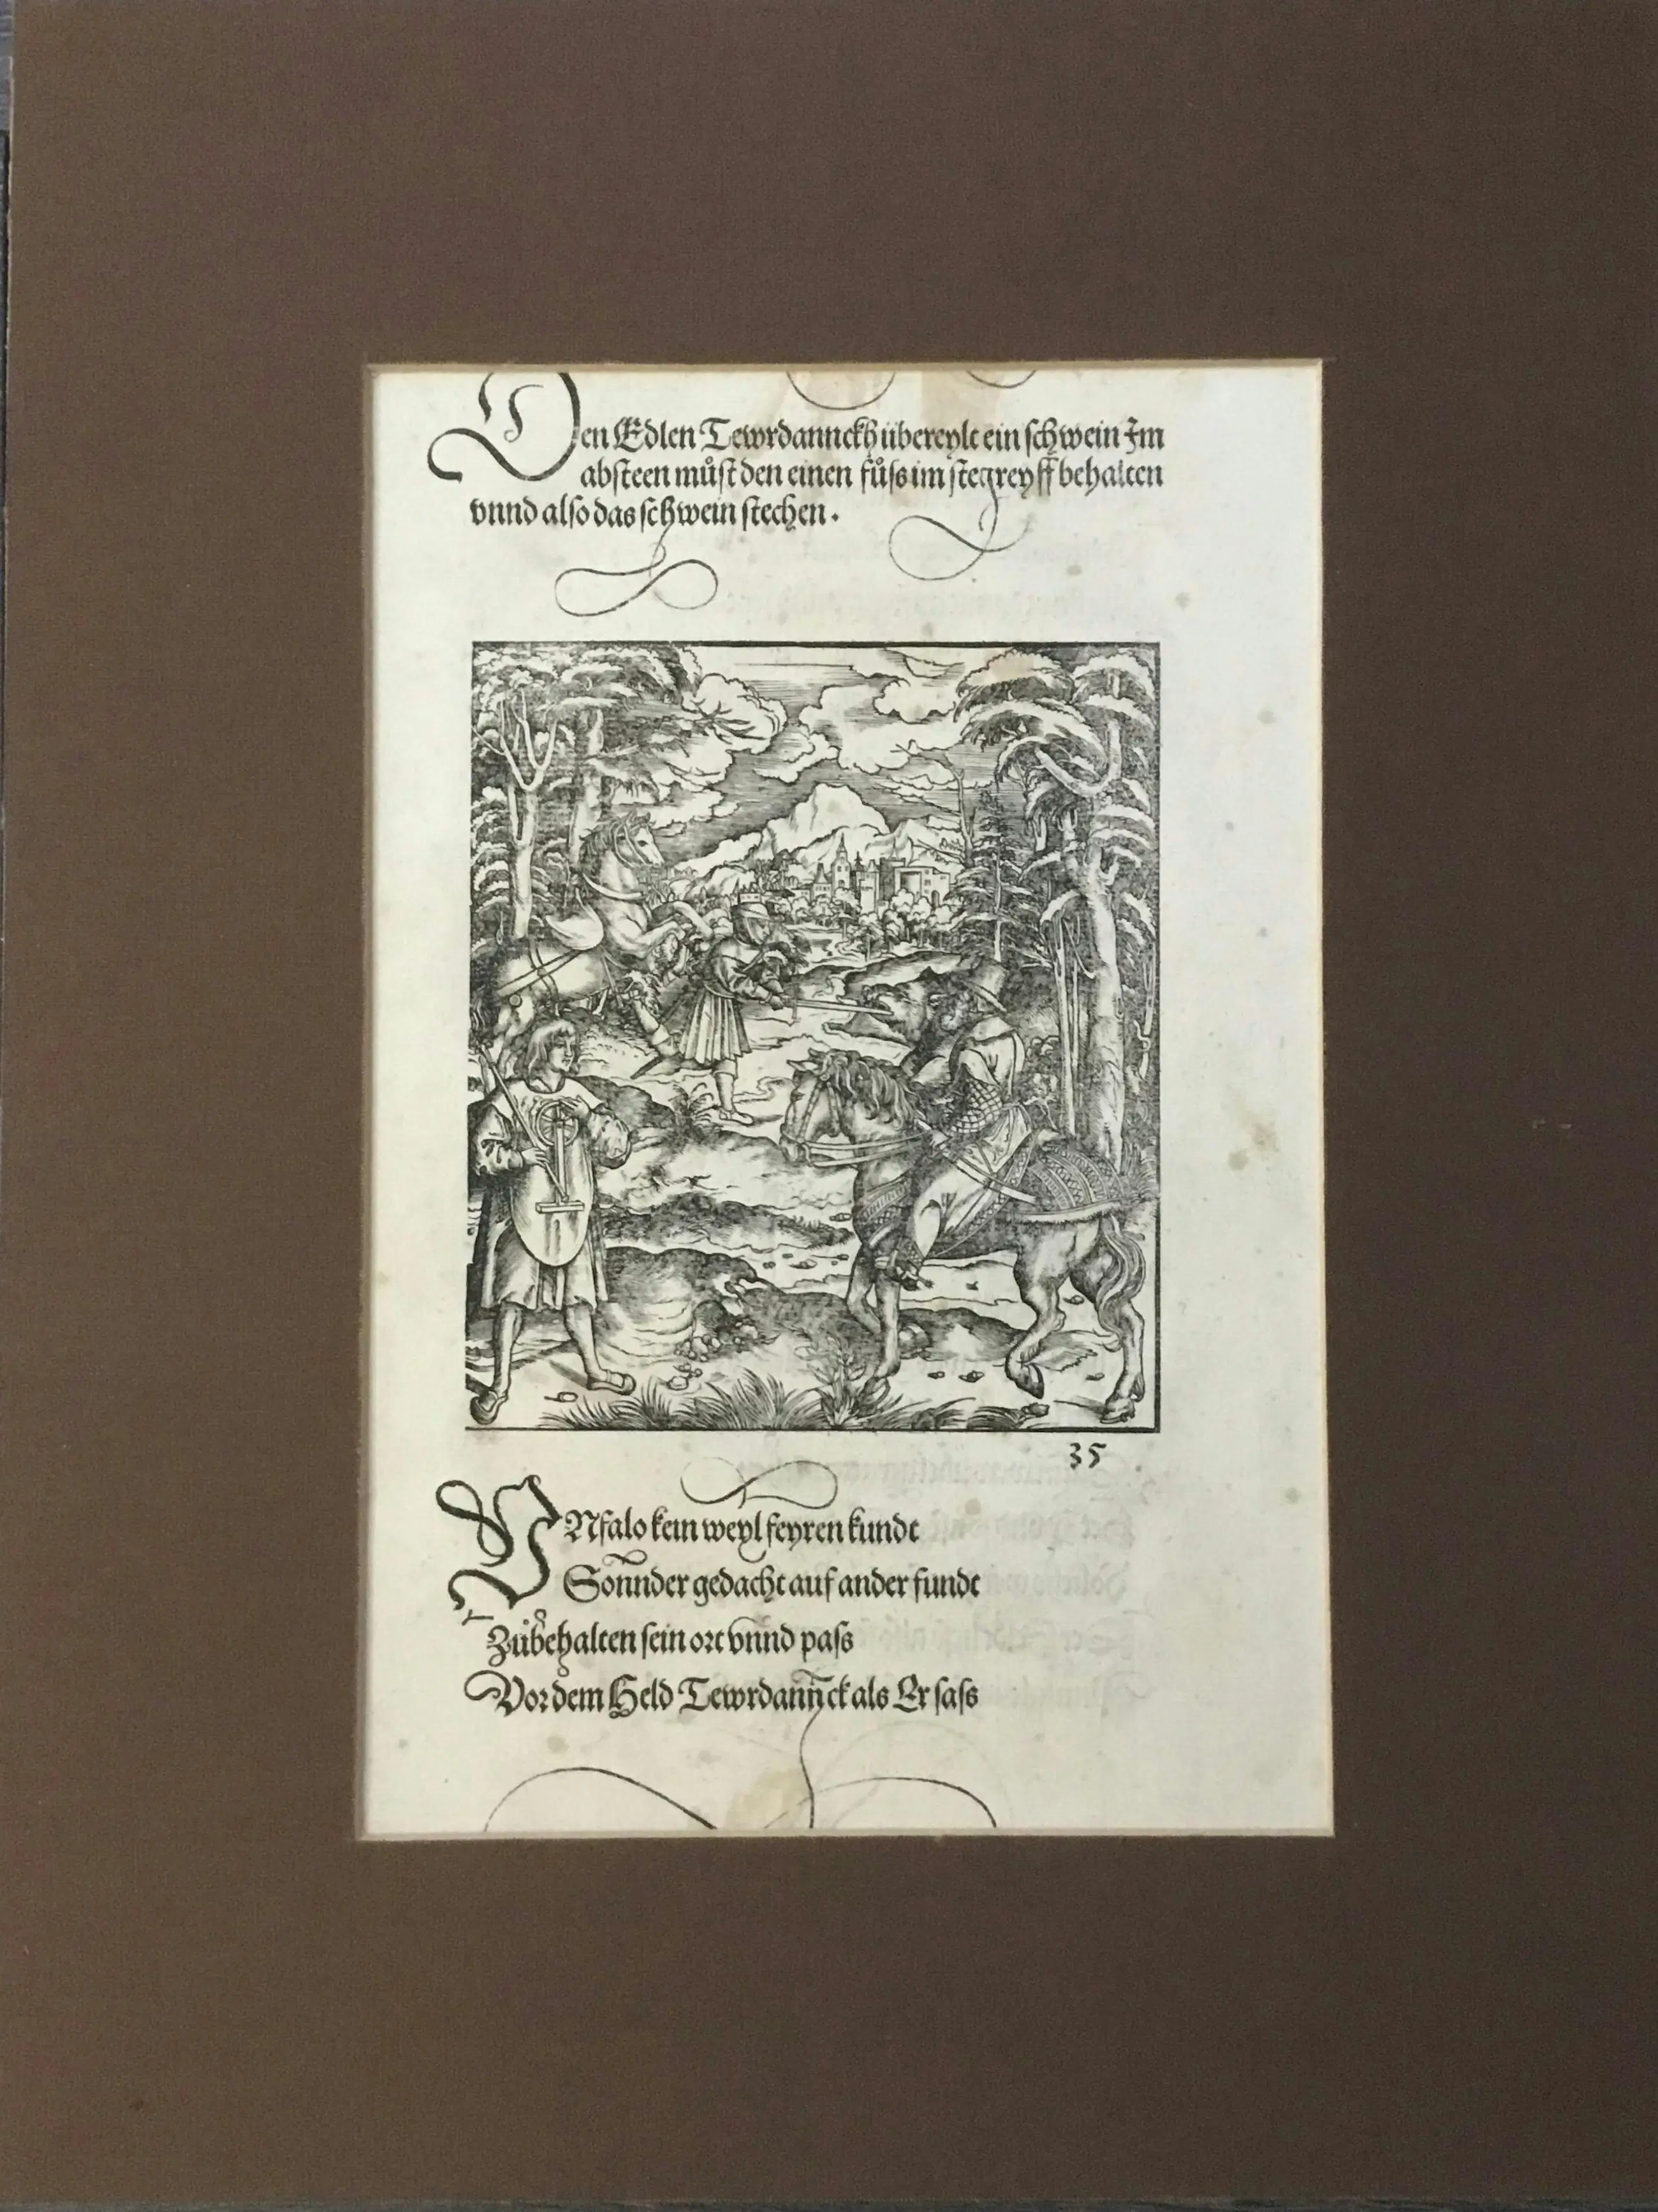 Den Edlen Tewrdannckh übereylt ein schwein Im
absteen můst den einen fůss im stegreyff behalten
vnnd also das schwein stechen.
35
VNfalo kein weyl feyren kundt
Sonnder gedacht auf ander fundt
Zůbehalten sein ort vnnd pass
Vor dem Held Tewrdannck als Er sass